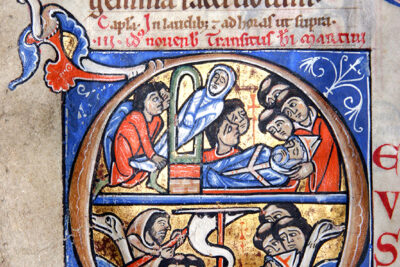 gemma sacerdotum
Capl̃. In laudib; ⁊ ad horas ut supra.
.III. Id' novenb Transitus bi martini
E
V
S